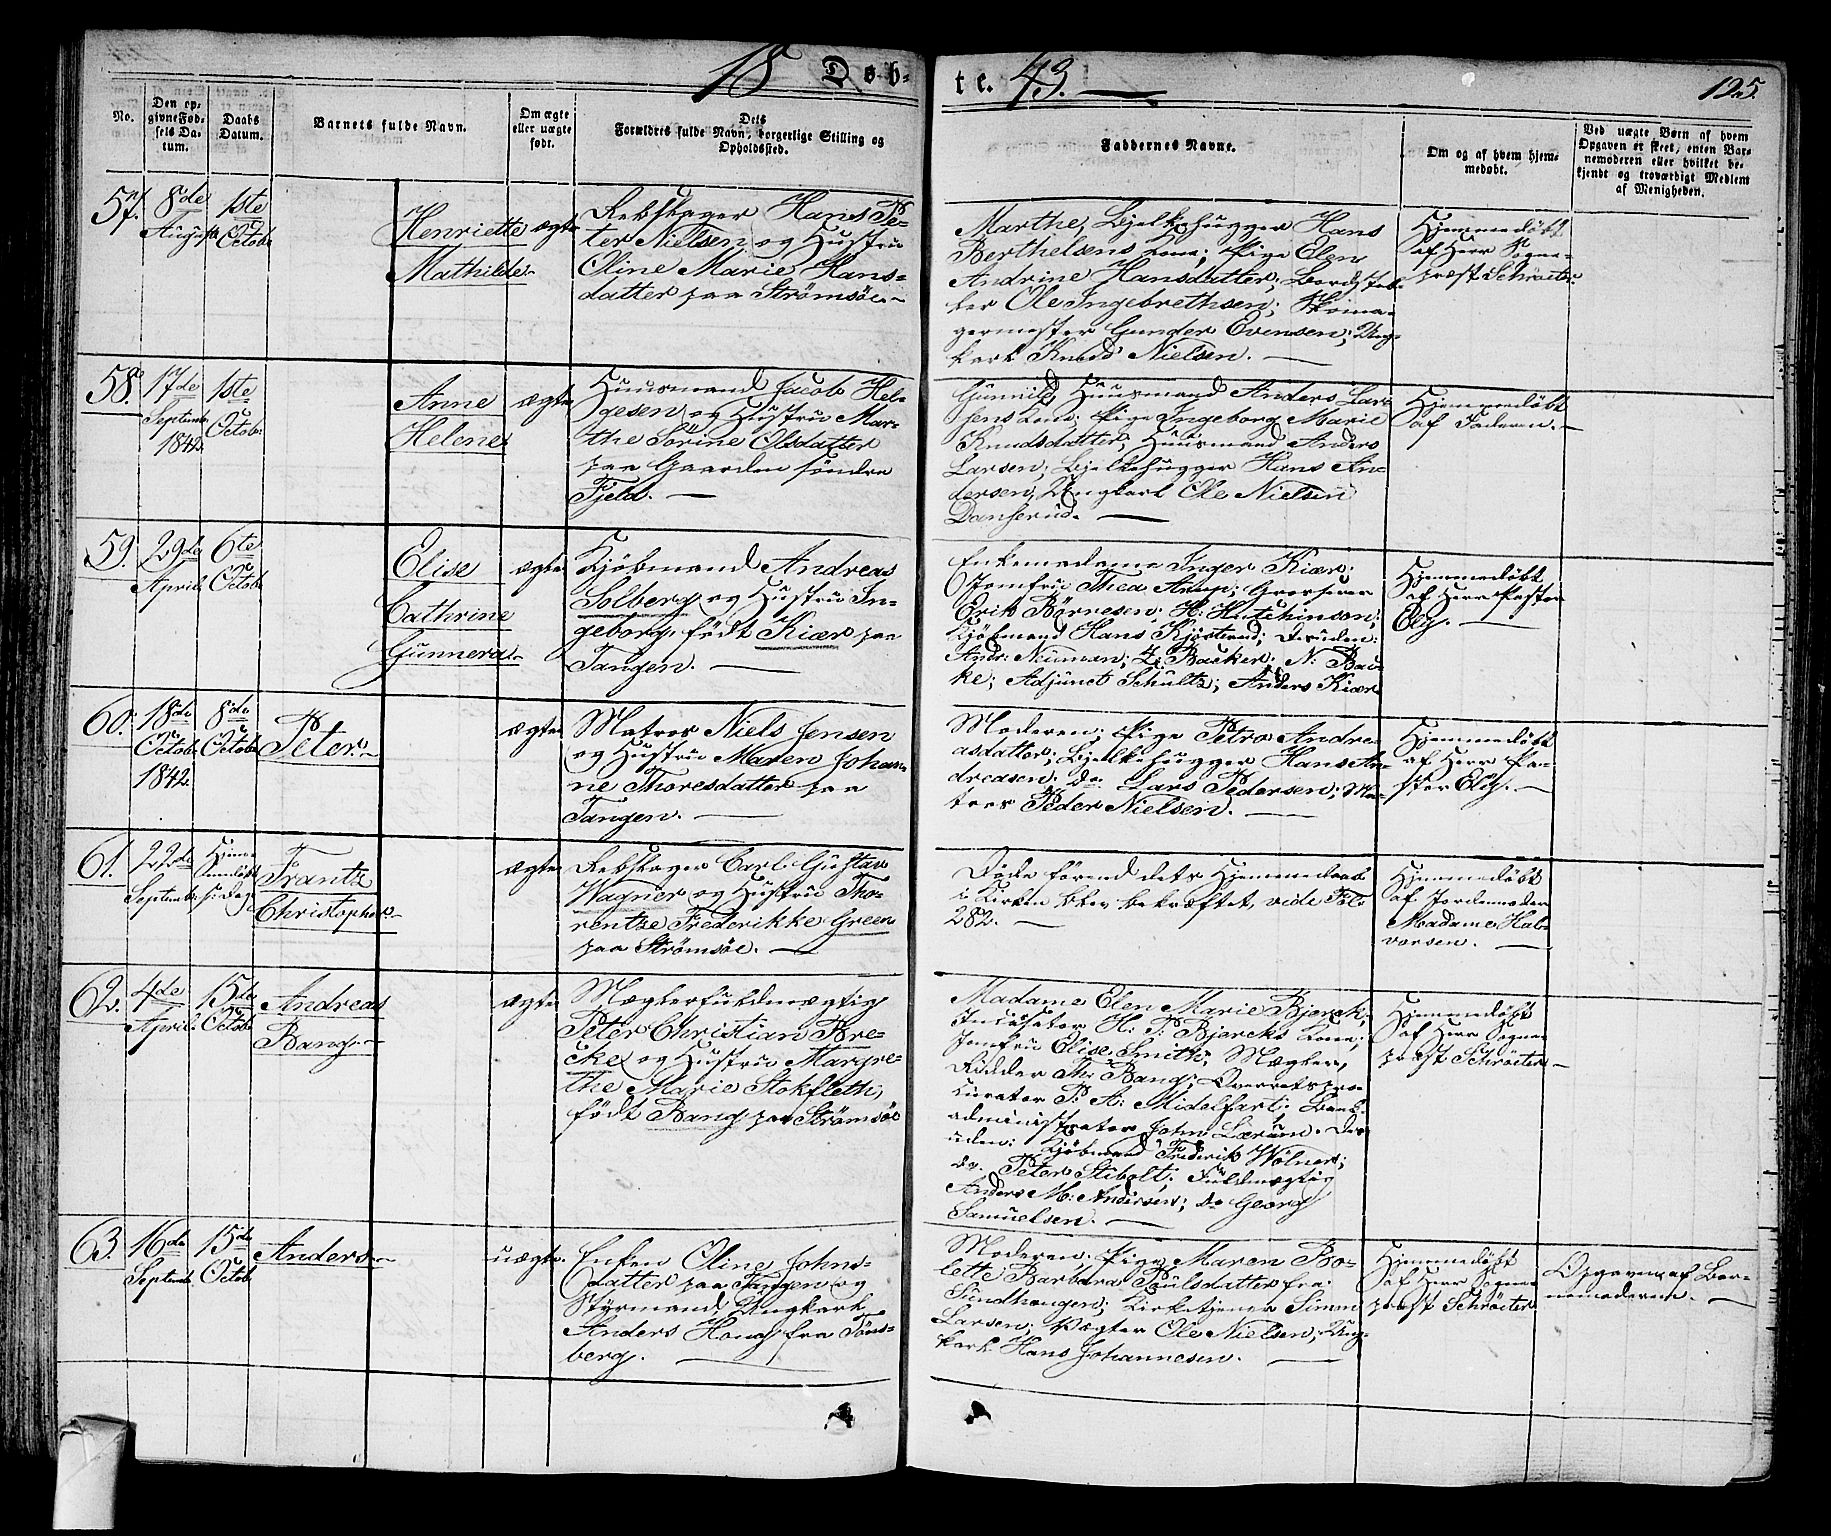 18 Døb-
te. 43.
125.
No.
Den op-
givne Fød-
sels Da-
tum.
Daabs
Datum.
Barnets fulde Navn.
Om ægte
eller uægte
født.
Dets
Forældres fulde Navn, borgerlige Stilling og
Opholdssted.
Faddernes Navne.
Om og af hvem hjem-
medøbt.
Ved uægte Børn af hvem
Opgaven er skeet, enten Bar-
nemoderen eller hvilket be-
kjendt og troværdigt Medlem
af Menigheden.
57.
8de
August
1ste
Octob:
Henriette
Mathilde
ægte
Rebslager Hans Pe-
ter Nielsen og Hustru
Oline Marie Hans-
datter paa Strömsöe.
Marthe, Bjelkehugger Hans
Berthelsens Kone; Pige Elen
Andrine Hansdatter; Bordstab-
ler Ole Ingebrethsen; Skoma-
germester Gunder Evensen; Ung-
karl Knud Nielsen.
Hjemmedøbt
af Herr Sogne-
præst Schröeter.
58.
17de
Septemb:
1842.
1ste
Octob:
Anne
Helene
ægte
Huusmand Jacob Hel-
gesen og Hustru Mar-
the Sörine Olsdatter
paa Gaarden söndre
Fjeld.
Gunnild, Huusmand Anders Lar-
sens Kone; Pige Ingeborg Marie
Knudsdatter; Huusmand Anders
Larsen; Bjelkehugger Hans An-
dersen, Ungkarl Ole Nielsen
Danserud.
Hjemmedøbt
af Faderen.
59.
29de
April
6te
Octob:
Elise
Cathrine
Gunnera
ægte
Kjöbmand Andreas
Solberg og Hustru In-
geborg, född Kiær paa
Tangen.
Enkemadame Inger Kiær;
Jomfru Thea Arup; Grosserer
Erik Börnesen; H: Hutchinson;
Kjöbmand Hans Kjöstrud; Desuden:
Andr: Neuman; Z: Backer; N: Bau-
ke; Adjunct Schultz; Anders Kiær
Hjemmedøbt
af Herr Pastor
Elg.
60.
18de
Octob:
1842
8de
Octob:
Peter
ægte
Matros Niels Jensen
og Hustru Maren Johan-
ne Thoresdatter paa
Tangen.
Moderen; Pige Petra Andre-
asdatter; Bjelkehugger Hans An-
dreasen; do Lars Pedersen; Ma-
tros Peder Nielsen.
Hjemmedøbt
af Herr Pa-
stor Elg.
61.
22de
Septemb:
Hjem-
medøbt
s: Dag
Frantz
Christopher
ægte
Rebslager Carl Gustav
Wagner og Hustru Tho-
rentze Frederikke Green
paa Strömsöe.
Døde førend dets Hjemmedaab
i Kirken blev bekræftet, vide Fol:
282.
Hjemmedøbt
af Jordemoder
Madame Hal-
vorsen.
62.
4de
April
15de
Octob:
Andreas
Bang
ægte
Mægterfuldmægtig
Peter Christian Bre-
cke og Hustru Margre-
the Marie Stokfleth,
född Bang paa Strömsöe
Madame Elen Marie Bjerck,
Indesater H: P: Bjercks Kone;
Jomfru Elise Smith; Mægler,
Ridder Th: Bang; Overretspro-
curator P: A: Midelfart; Bank-
administrator John Lærum. Des-
uden: Kjöbmand Frederik Wölner;
do. Peter Stibolt; Fuldmægtig
Anders M: Andersen; do Georg
Samuelsen.
Hjemmedøbt
af Herr Sogne-
præst Schröeter
63.
16de
Septemb:
15de
Octob:
Anders
uægte.
Enken Oline Johns-
datter paa Tangen og
Styrmand, Ungkarl
Anders Houg fra Töns-
berg.
Moderen; Pige Maren Bo-
lette Barbara Poulsdatter fra
Sundhaugen; Kirketjener Simm
Larsen; Vægter Ole Nielsen; Ung-
karl Hans Johannesen.
Hjemmedøbt
af Herr Sogne-
præst Schröeter
Opgaven af Bar-
nemoderen.